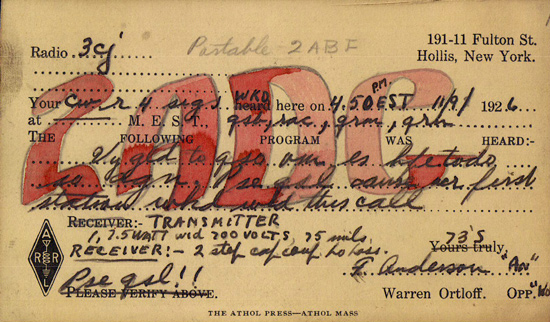 191-11 Fulton St.
Hollis, New York.
Radio 3cj Portable - 2ABF
2ADC
Your cw-r 4 sigs WKD heard here on 4.50 PM EST 11/9/ 1926
at M. E. S. T. qsb, rac, qrm, qrn
THE FOLLOWING PROGRAM WAS HEARD:-
Vy gld to qso om, es hpe to do
so agn. Pse qsl cause ur first
station wkd wid this call
RECEIVER:- TRANSMITTER
1, 7.5 WATT wid 700 VOLTS, 75 mils.
RECEIVER:- 2 step
73'S
Yours truly,
F. Anderson "An"
Pse qsl!!
PLEASE VERIFY ABOVE.
Warren Ortloff. OPP.
A R R L
THE ATHOL PRESS—ATHOL MASS